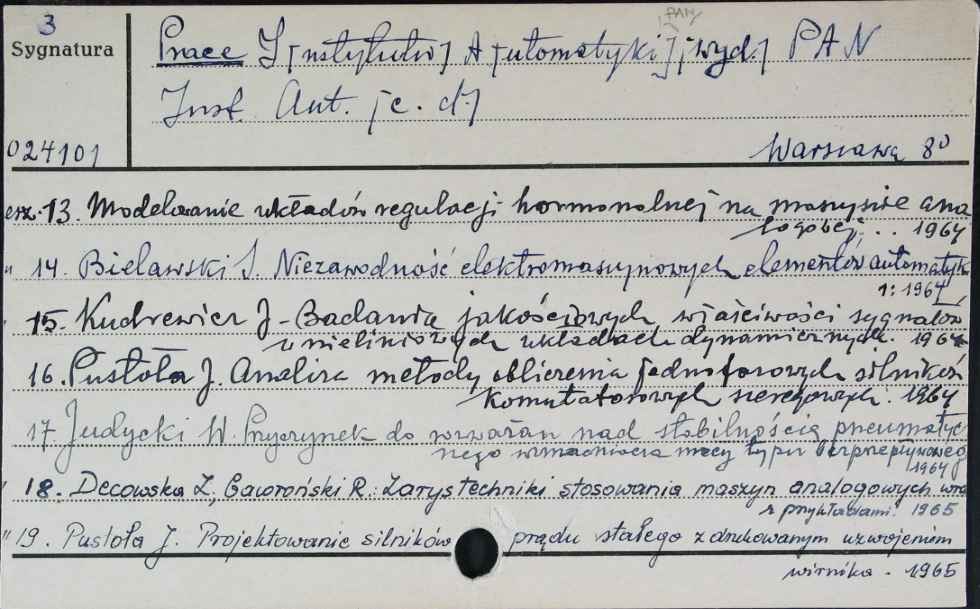 3
Sygnatura
PAN
Prace I[nstytutu] A[utomatyki] [wyd.] PAN
Inst. Aut. [c. d.]
024101
Warszawa 8°
zesz. 13. Modelowanie układów regulacji hormonalnej na maszynie ana
logowej... 1964
" 14. Bielawski S. Niezawodność elektromaszynowych elementów automatyki
1: 1964
15. Kudrewicz J - Badania jakościowych właściwości sygnałów
w nieliniowych układach dynamicznych. 1964
16. Pustoła J. Analiza metody obliczenia jednofazowych silników
komutatorowych szeregowych. 1964
17 Judycki W. Przyczynek do rozważań nad stabilnością pneumatycz
nego wzmacniacza mocy typu bezprzepływowego
1964
" 18. Decowska Z, Gaworoński R.: Zarys techniki stosowania maszyn analogowych wraz
z przykładami. 1965
" 19. Pustoła J. Projektowanie silników prądu stałego z drukowanym uzwojeniem
wirnika - 1965